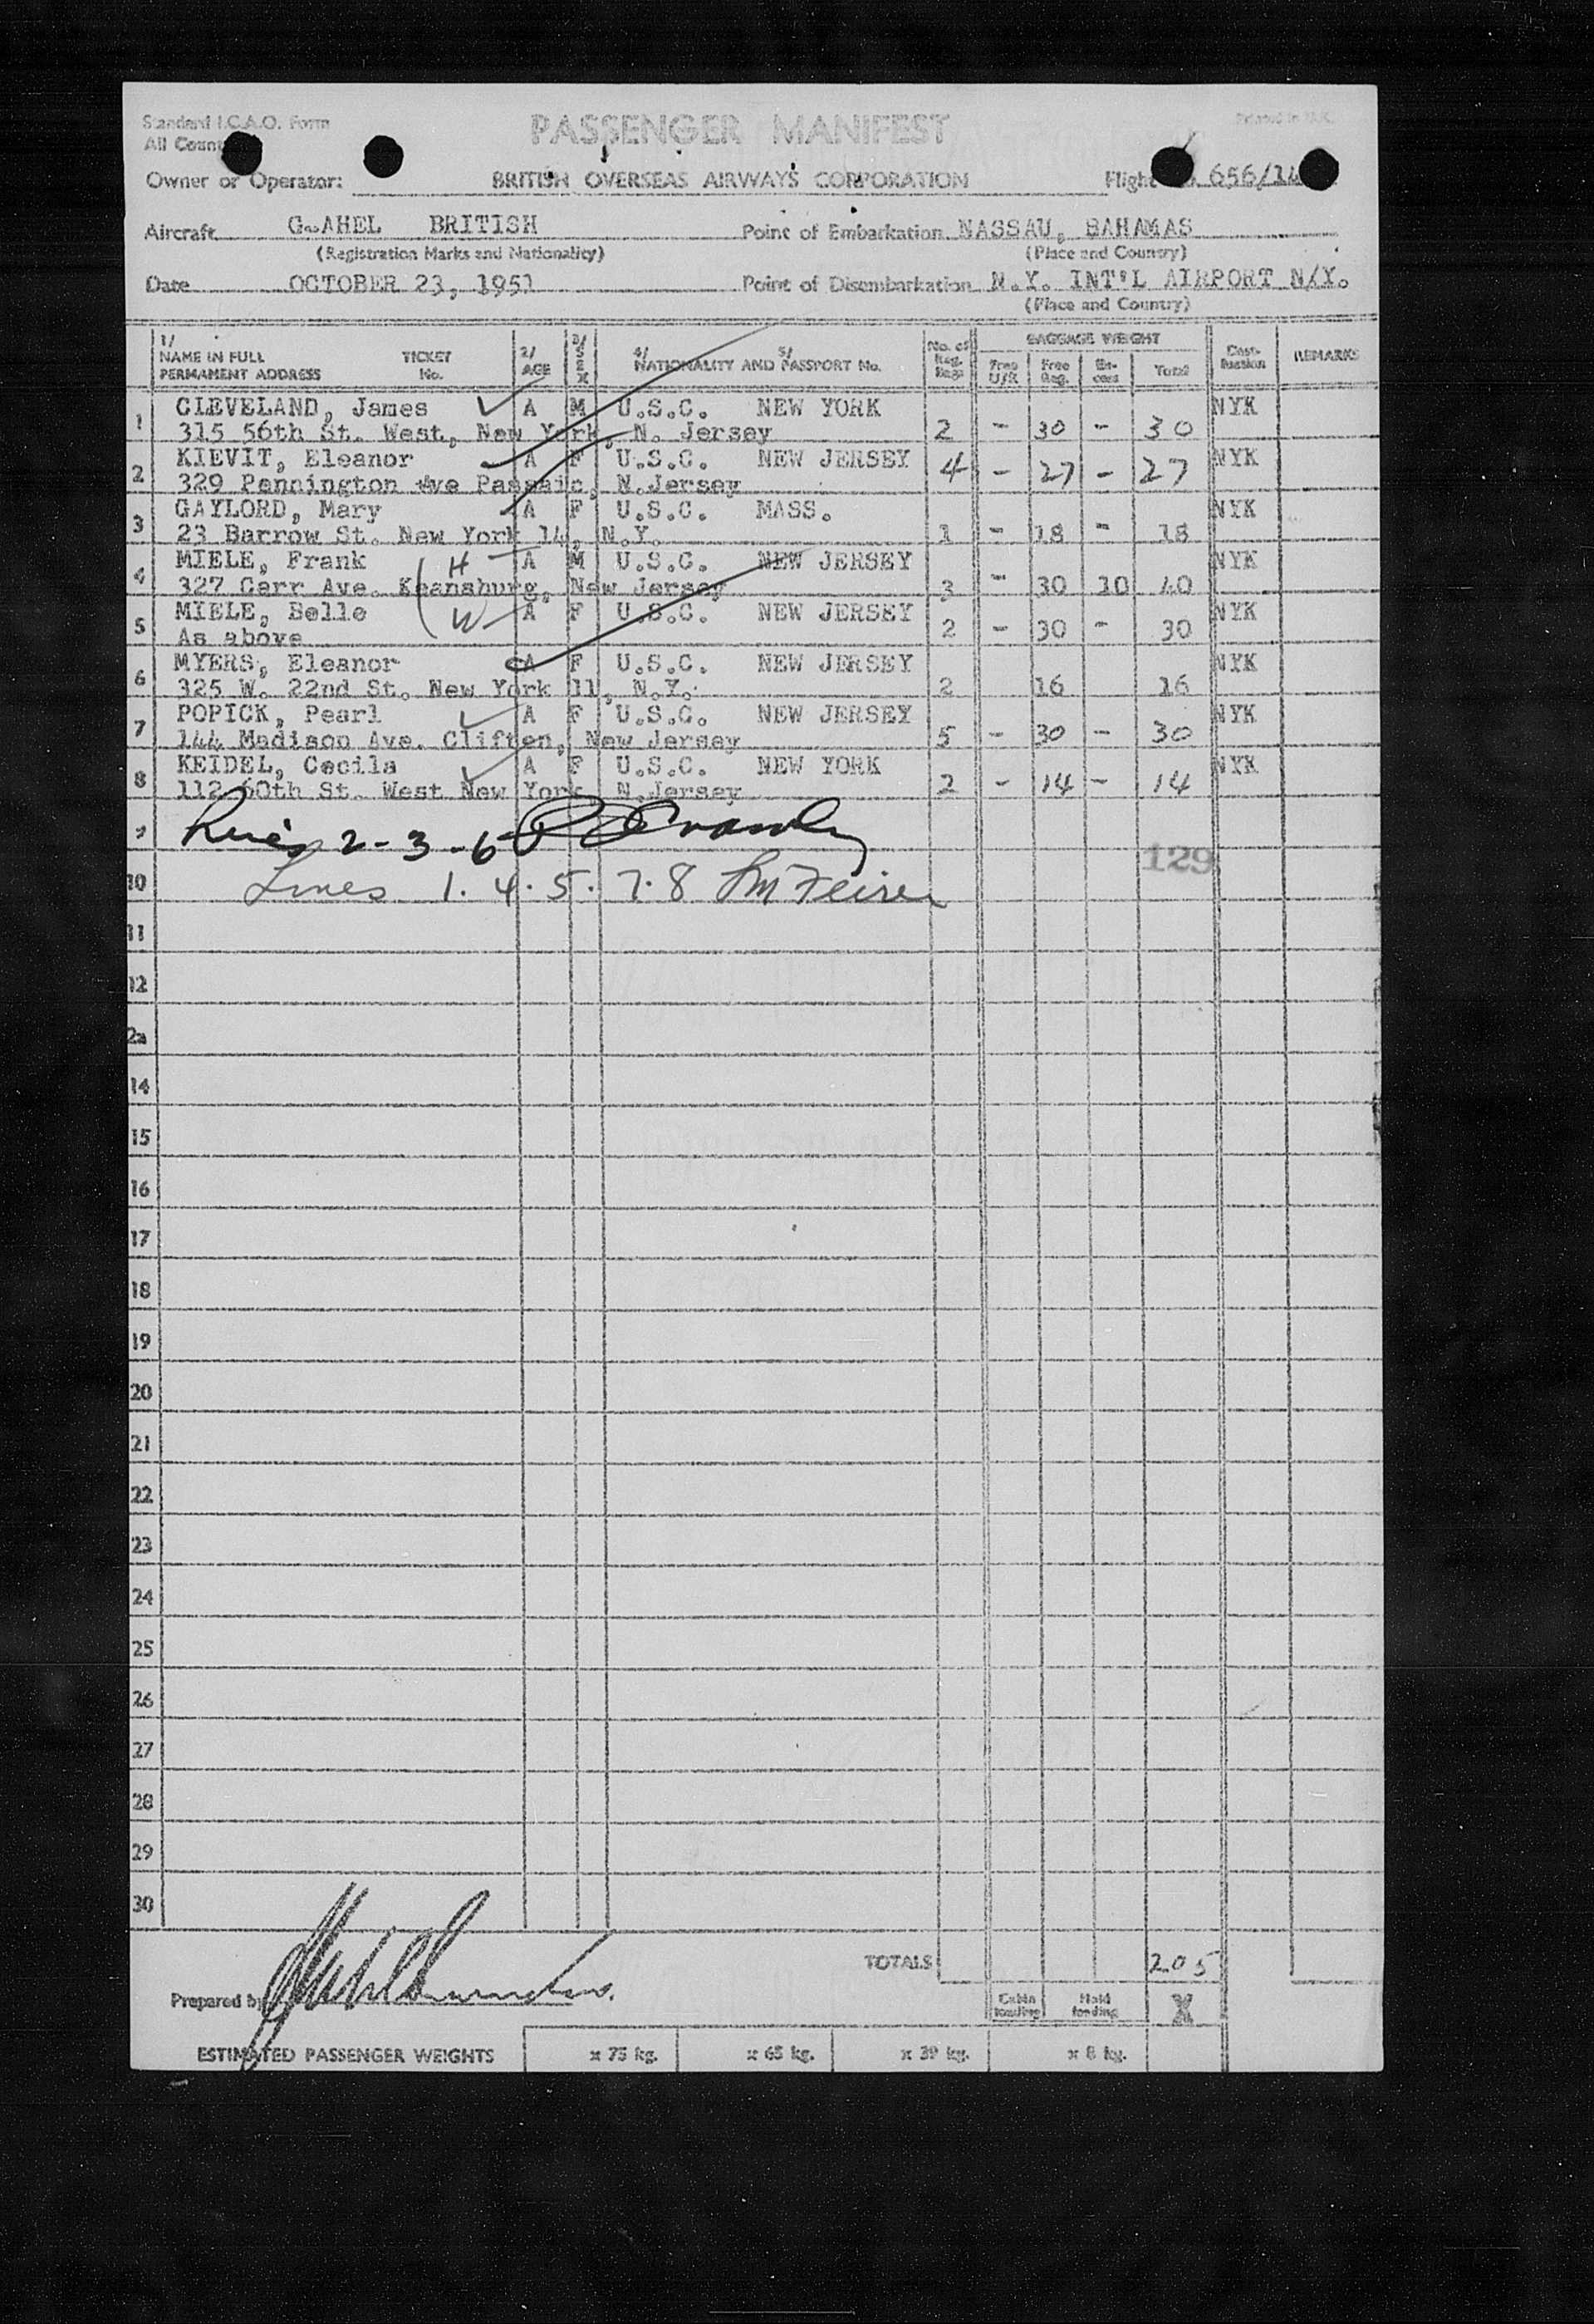 Standard I.C.A.O. Form
PASSENGER MANIFEST
Printed in U.K.
All
Owner or Operator: BRITISH OVERSEAS AIRWAYS CORPORATION Flight 656/14
Aircraft G-AHEL BRITISH Point of Embarkation NASSAU, BAHAMAS
(Registration Marks and Nationality) (Place and Country)
Date OCTOBER 23, 1951 Point of Disembarkation N.Y. INT'L AIRPORT N/Y.
(Place and Country)
1/ NAME IN FULL PERMANENT ADDRESS TICKET No. 2/ AGE 3/ SEX 4/ NATIONALITY AND 5/ PASSPORT No. No. of Reg. Bags BAGGAGE WEIGHT Free U/R Free Reg. Ex-cess Total REMARKS
1 CLEVELAND, James A M U.S.C. NEW YORK NYK
315 56th St. West, New York, N. Jersey 2 - 30 - 30
2 KIEVIT, Eleanor A F U.S.C. NEW JERSEY 4 - 27 - 27 NYK
329 Pennington Ave Passaic, N.Jersey
3 GAYLORD, Mary A F U.S.C. MASS. NYK
23 Barrow St. New York 14, N.Y. 1 - 18 - 18
4 MIELE, Frank H A M U.S.C. NEW JERSEY NYK
327 Carr Ave. Keansburg, New Jersey 3 - 30 10 40
5 MIELE, Belle W A F U.S.C. NEW JERSEY NYK
As above 2 - 30 - 30
6 MYERS, Eleanor A F U.S.C. NEW JERSEY NYK
325 W. 22nd St. New York 11, N.Y. 2 16 16
7 POPICK, Pearl A F U.S.C. NEW JERSEY NYK
144 Madison Ave. Clifton, New Jersey 5 - 30 - 30
8 KEIDEL, Cecila A F U.S.C. NEW YORK NYK
112 60th St. West New York N.Jersey 2 - 14 - 14
9 2-3-6
129
10 Lines 1.4.5.7.8
11
12
2a
14
15
16
17
18
19
20
21
22
23
24
25
26
27
28
29
30
TOTALS 205
Prepared by
Cabin loading Hold loading X
ESTIMATED PASSENGER WEIGHTS x 75 kg. x 65 kg. x 39 kg. x 8 kg.